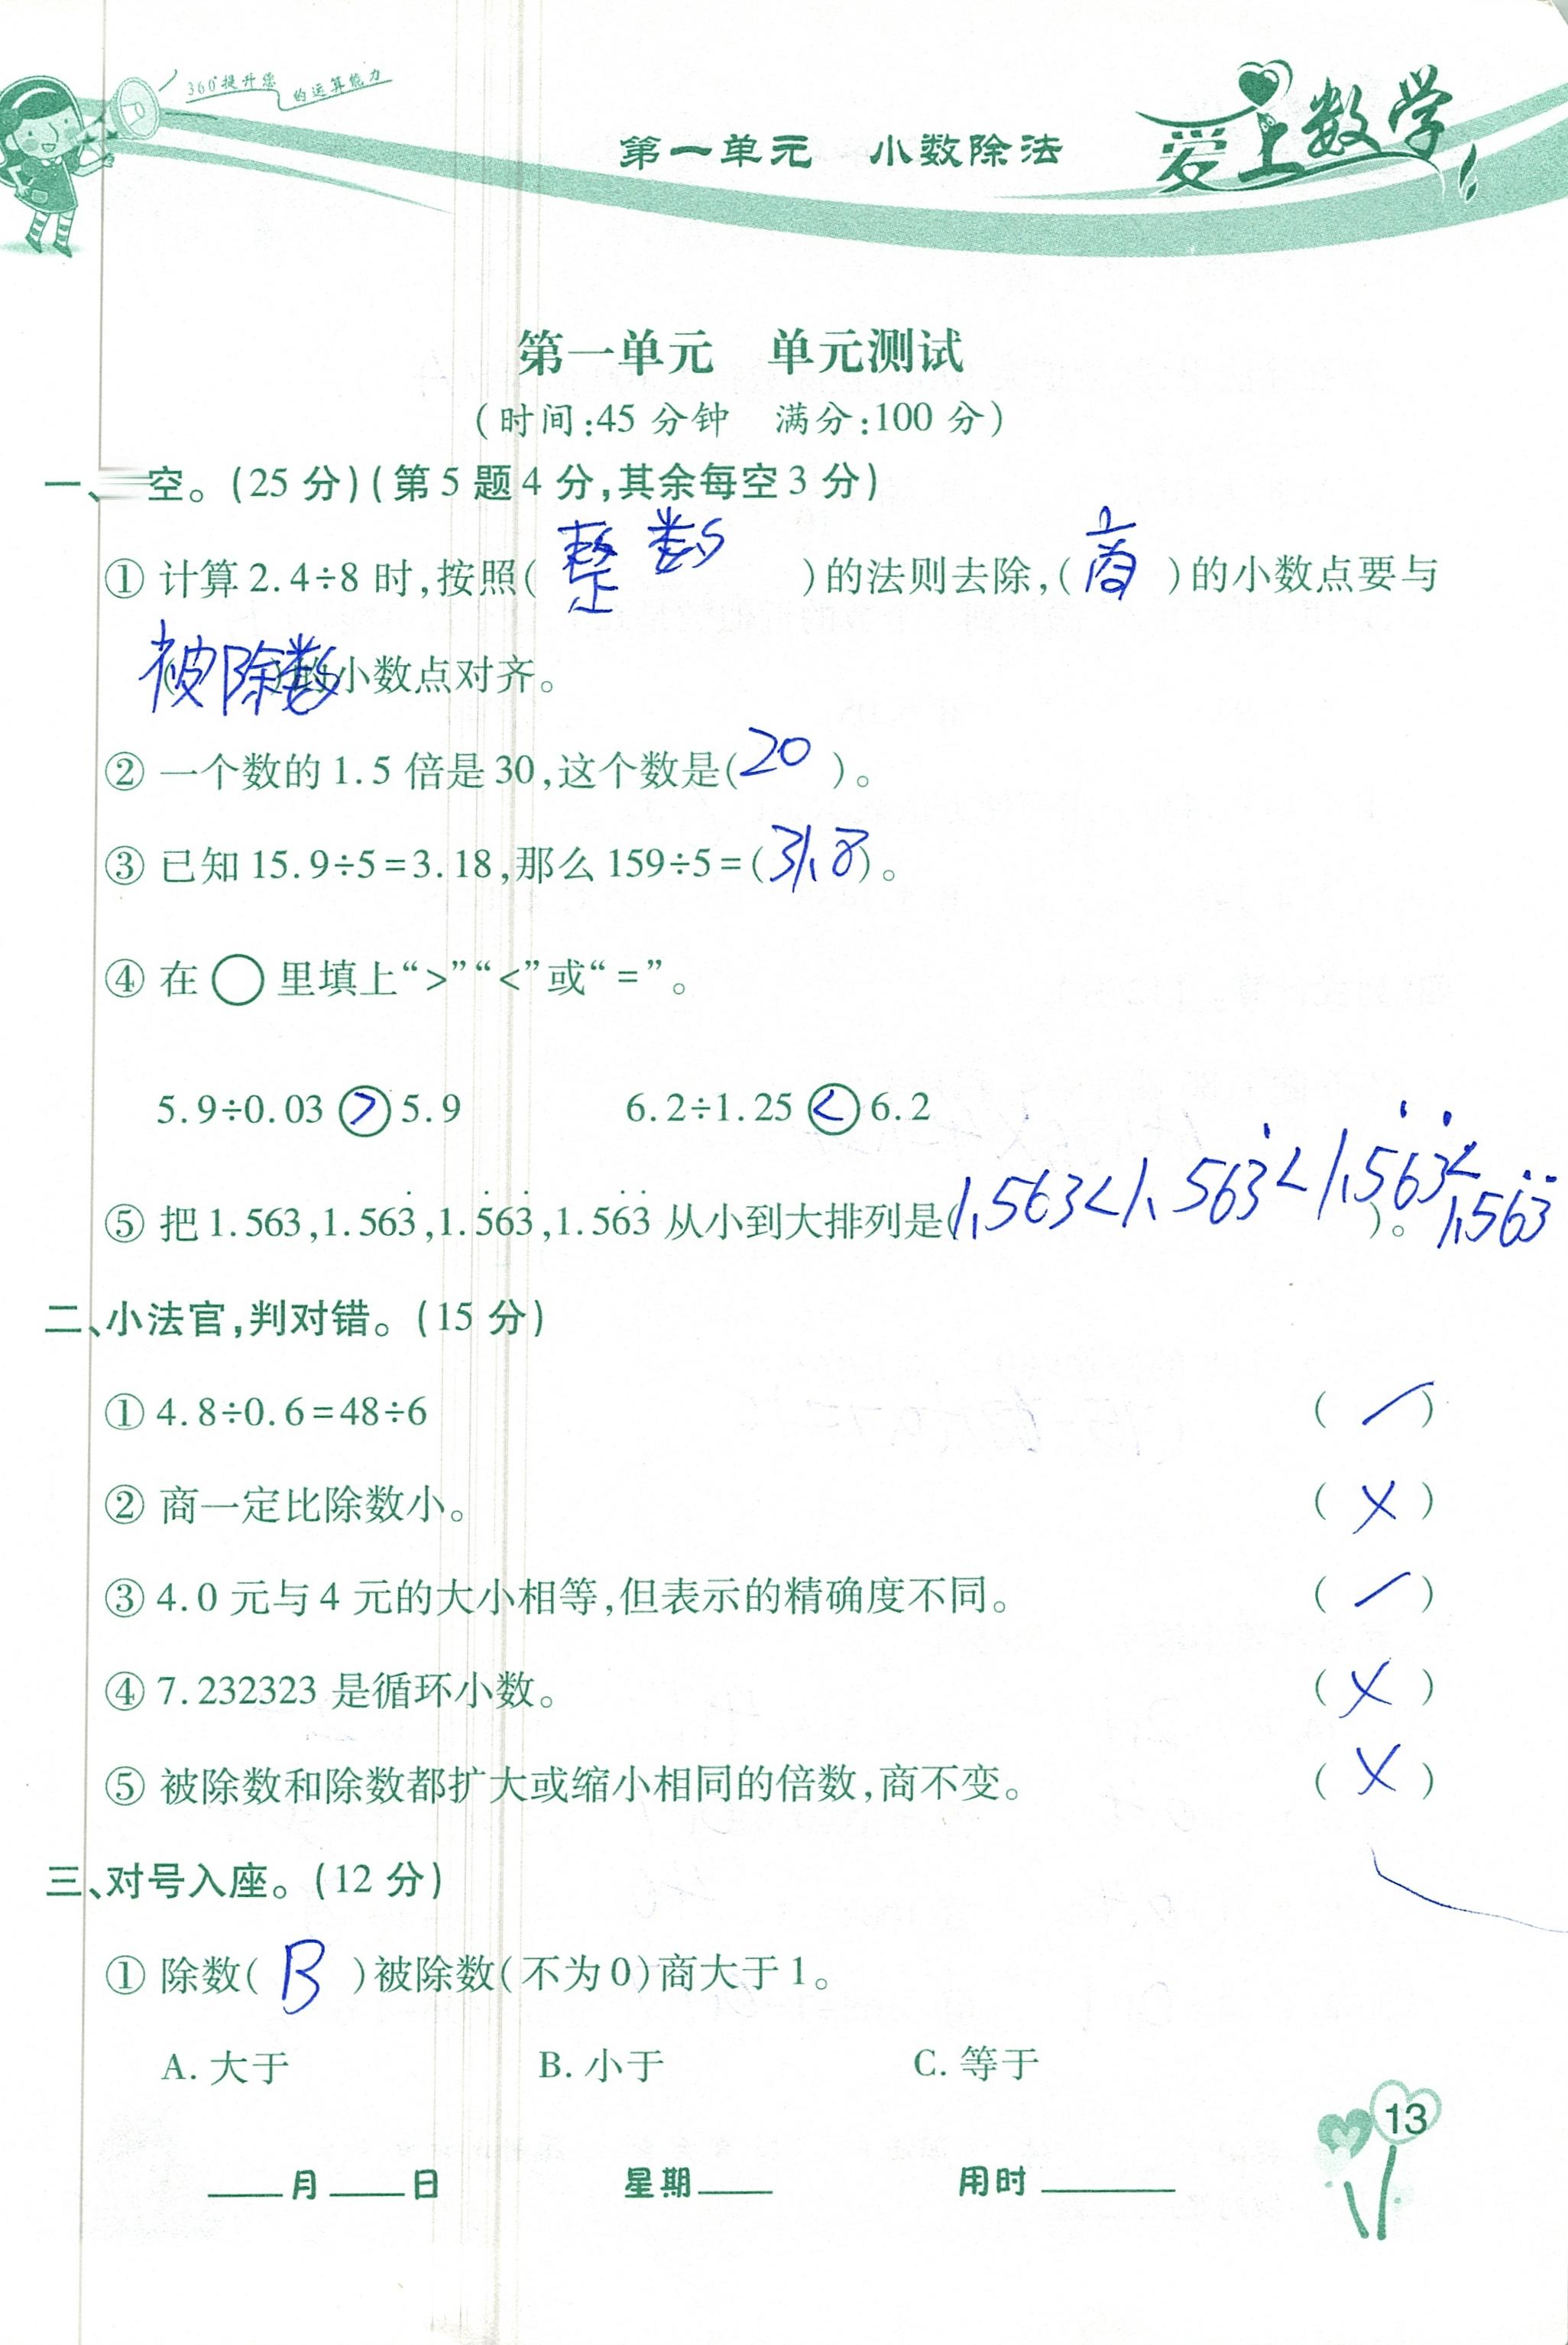 360°提升您的运算能力
第一单元 小数除法
爱上数学
第一单元 单元测试
(时间:45 分钟 满分:100 分)
一、空。(25 分)(第 5 题 4 分,其余每空 3 分)
① 计算 2.4÷8 时,按照(整数)的法则去除,(商)的小数点要与
(被除数)的小数点对齐。
② 一个数的 1.5 倍是 30,这个数是(20)。
③ 已知 15.9÷5=3.18,那么 159÷5=(31.8)。
④ 在○里填上“>”“<”或“=”。
5.9÷0.03 > 5.9 6.2÷1.25 < 6.2
⑤ 把 1.563,1.563̇,1.5̇63̇,1.56̇3̇ 从小到大排列是(1.563<1.563̇<1.5̇63̇<1.56̇3̇)。
二、小法官,判对错。(15 分)
① 4.8÷0.6=48÷6 (✓)
② 商一定比除数小。 (×)
③ 4.0 元与 4 元的大小相等,但表示的精确度不同。 (✓)
④ 7.232323 是循环小数。 (×)
⑤ 被除数和除数都扩大或缩小相同的倍数,商不变。 (×)
三、对号入座。(12 分)
① 除数(B)被除数(不为 0)商大于 1。
A. 大于 B. 小于 C. 等于
13
____月____日 星期____ 用时______